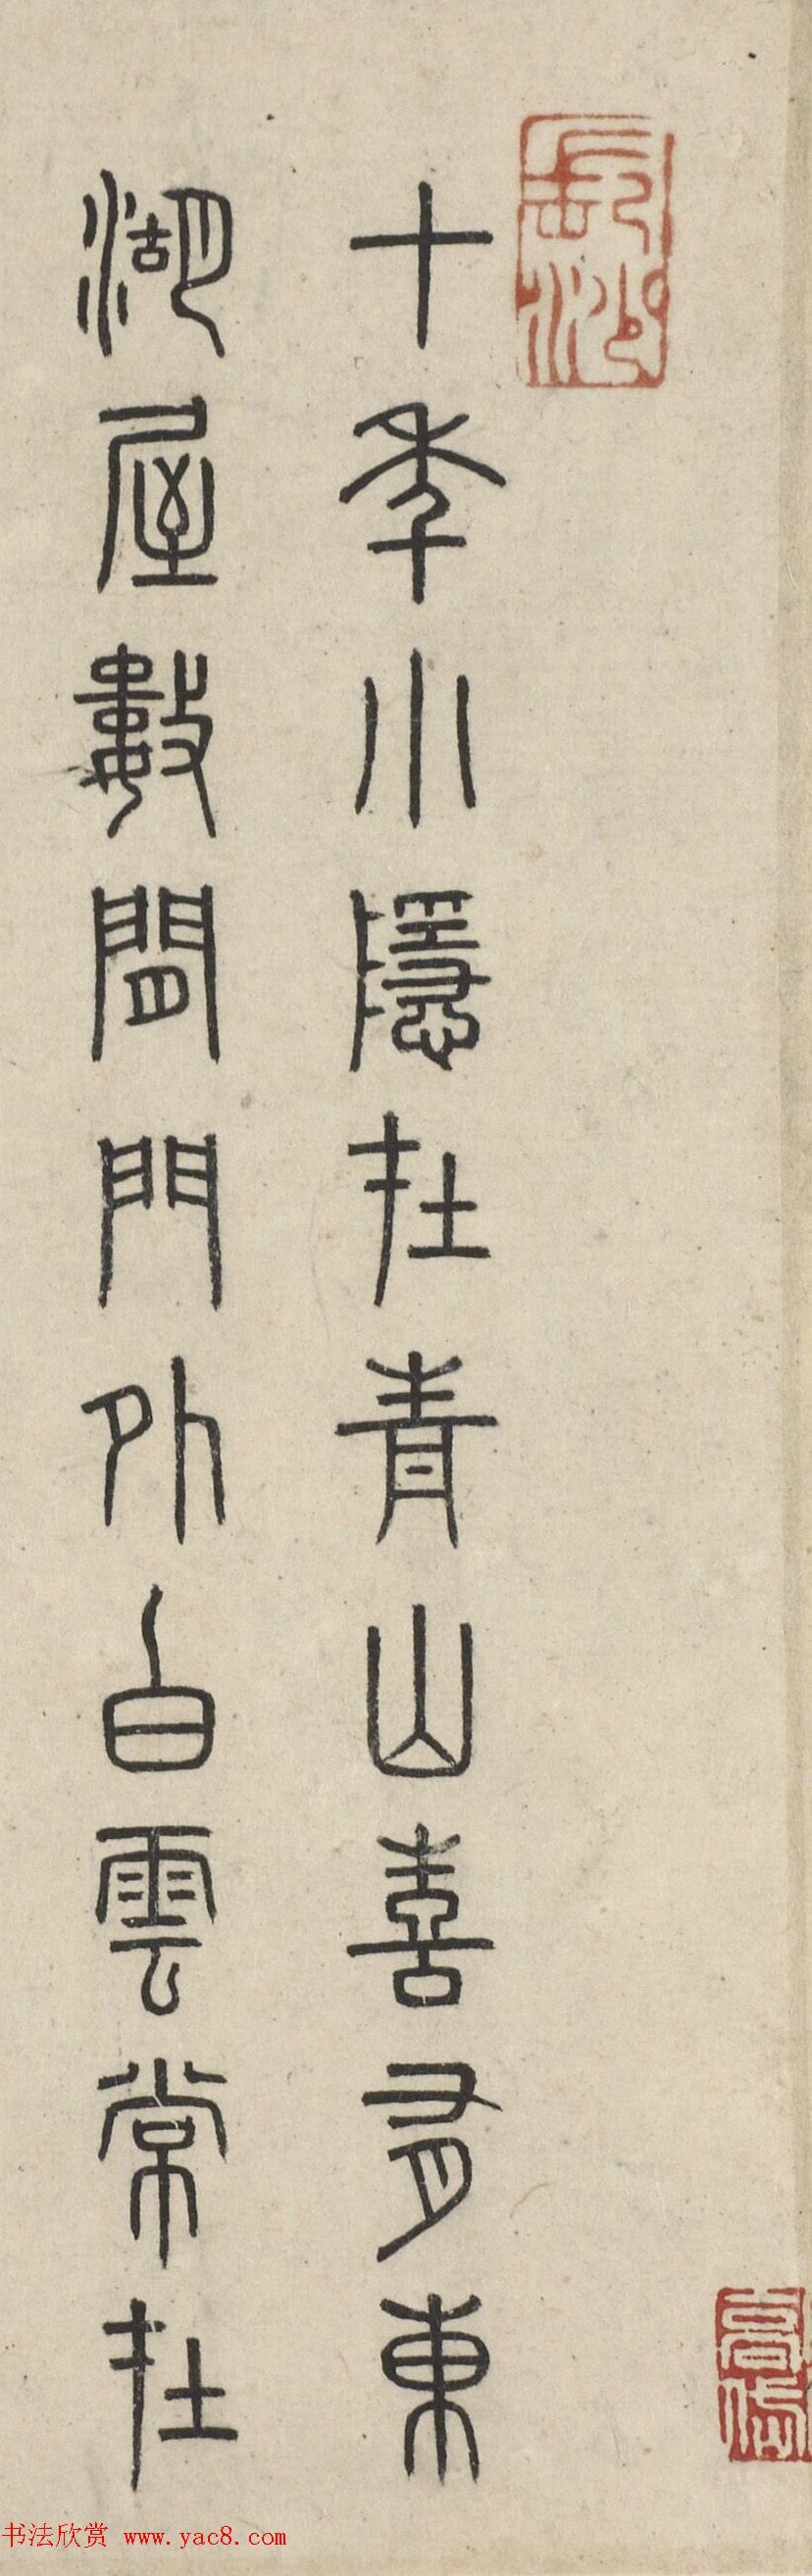 十年小隱在青山喜有東
湖屋數間門外白雲常在
长沙
书法欣赏 www.yac8.com